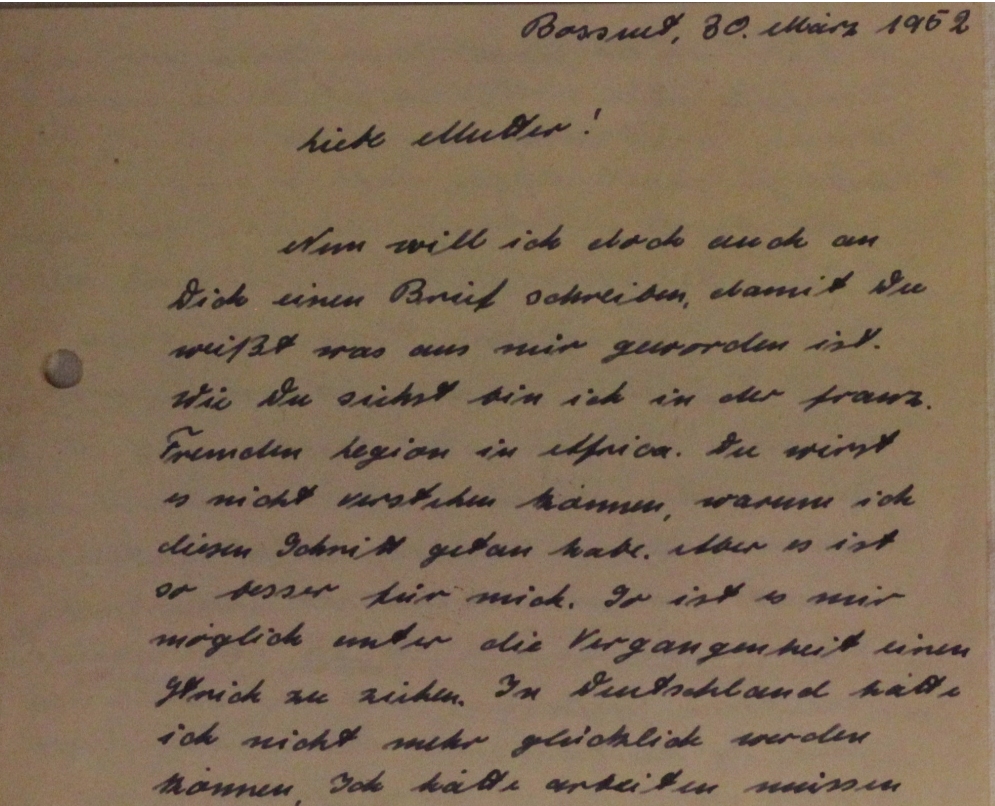 Bossuet, 30. März 1952
Liebe Mutter!
Nun will ich doch auch an
Dich einen Brief schreiben, damit Du
weißt was aus mir geworden ist.
Wie Du siehst bin ich in der franz.
Fremden Legion in Africa. Du wirst
es nicht verstehen können, warum ich
diesen Schritt getan habe. Aber es ist
so besser für mich. So ist es mir
möglich unter die Vergangenheit einen
Strich zu ziehen. In Deutschland hätte
ich nicht mehr glücklich werden
können, Ich hätte arbeiten müssen